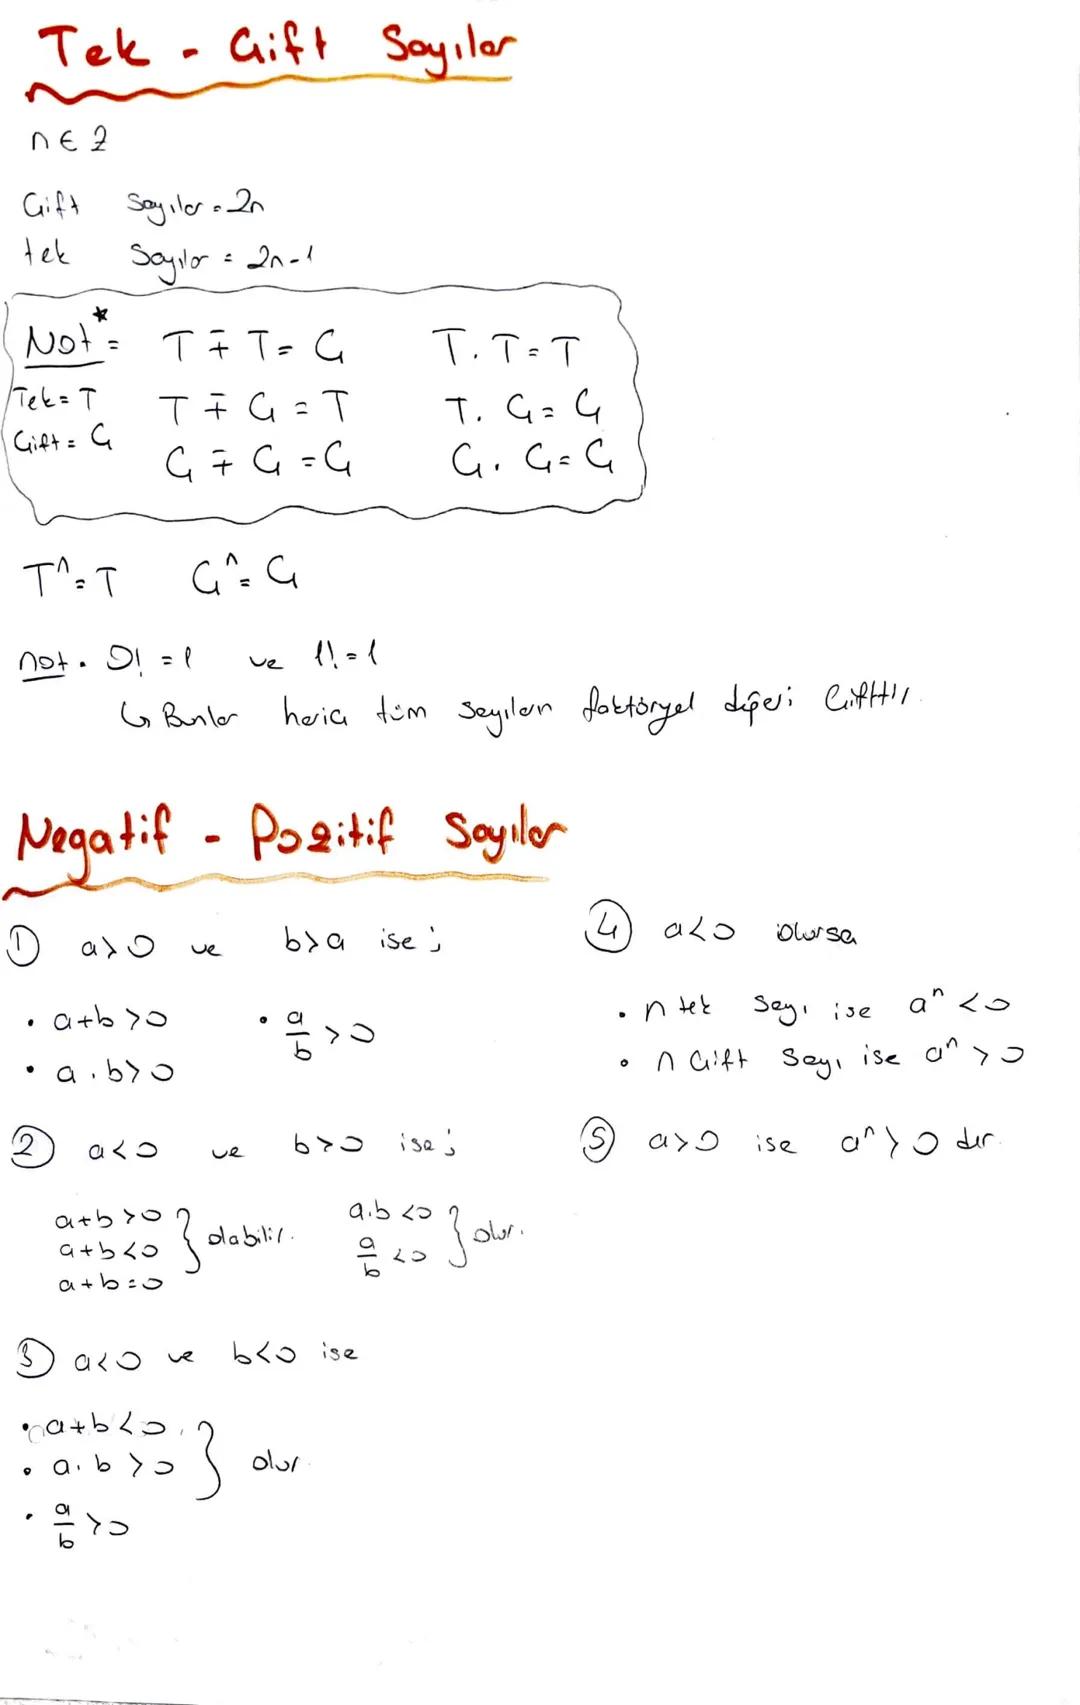 Tek - Çift Sayılar
n ∈ Z
Çift Sayılar = 2n
tek Sayılar = 2n-1
Not* = T ∓ T = Ç T . T = T
Tek = T T ∓ Ç = T T . Ç = Ç
Çift = Ç Ç ∓ Ç = Ç Ç . Ç = Ç
Tⁿ = T Çⁿ = Ç
not. 0! = 1 ve 1! = 1
↳ Bunlar hariç tüm sayıların faktöryel değeri Çifttir.
Negatif - Pozitif Sayılar
① a>0 ve b>a ise ;
• a+b >0 • a/b >0
• a . b>0
② a<0 ve b>0 ise ;
a+b >0
a+b <0 } olabilir.
a+b =0
a.b <0
a/b <0 } olur.
③ a<0 ve b<0 ise
• a+b <0
• a . b >0 } olur
• a/b >0
④ a<0 olursa
• n tek sayı ise aⁿ <0
• n Çift sayı ise aⁿ >0
⑤ a>0 ise aⁿ >0 dır.